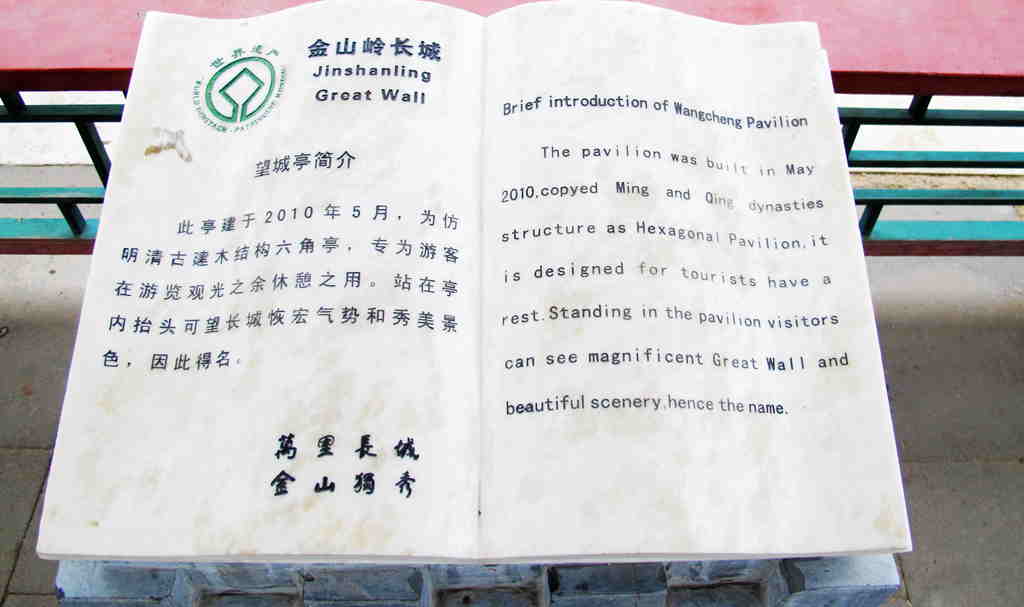 世界遗产
WORLD HERITAGE · PATRIMOINE MONDIAL
金山岭长城
Jinshanling
Great Wall
望城亭简介
此亭建于2010年5月，为仿
明清古建木结构六角亭，专为游客
在游览观光之余休憩之用。站在亭
内抬头可望长城恢宏气势和秀美景
色，因此得名。
萬里長城
金山獨秀
Brief introduction of Wangcheng Pavilion
The pavilion was built in May
2010,copyed Ming and Qing dynasties
structure as Hexagonal Pavilion,it
is designed for tourists have a
rest.Standing in the pavilion visitors
can see magnificent Great Wall and
beautiful scenery,hence the name.